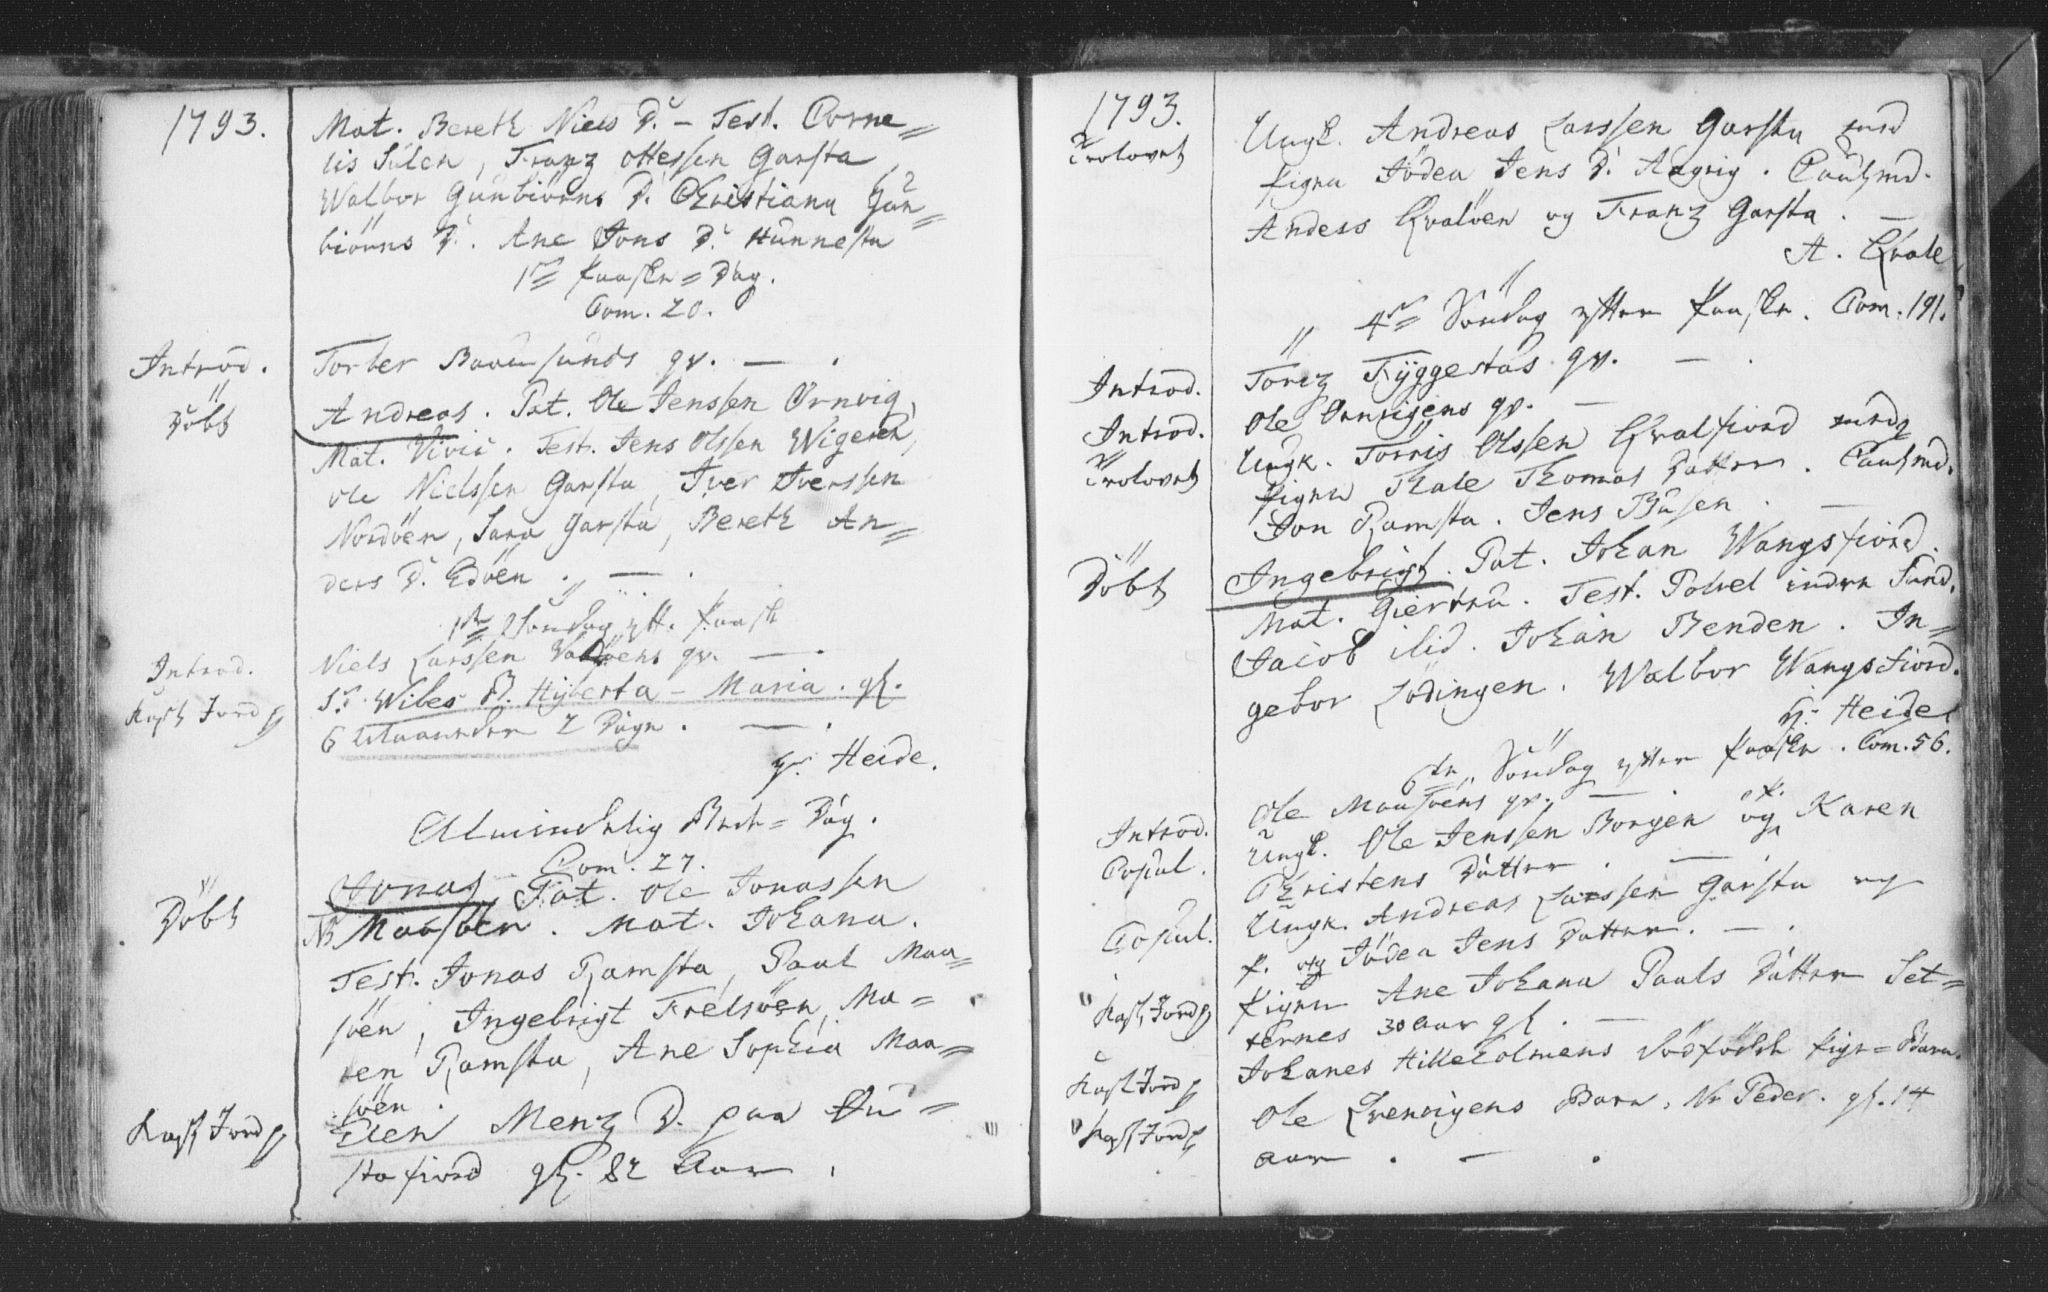 1793.
Mat. Bereth Niels D. - Test. Corne=
lis Sulen, Franz Ottessen Garsta,
Walbor Gunbiörns D. Christiana Gun=
biörns D. Ane Jons D. Hunnesta
1ste Paaske=Dag.
Com. 20.
Introd. Torber Baadsunds qv. — .
Döbt Andreas. Pat. Ole Jenssen Örnvig,
Mat. Vivic. Test. Jens Olssen Wigereh,
Ole Nielssen Garsta, Iver Iverssen
Nordöen, Sara Garsta, Bereth An=
ders D. Edöen. — .
1ste Söndag eft. Paask
Introd. Niels Larssen qv. — .
Kast Jord p Sr. Wibes B. Hyberta - Maria. gl.
6 Maaneder 2 Dage. — .
Hr. Heide.
Almindelig Bede=Dag.
Com. 27.
Döbt Jonas Pat. Ole Jonassen
NB Maasöen. Mat. Johana.
Test. Jonas Ramsta, Paul Maa=
söen, Ingebrigt Frelsöen, Ma=
ren Ramsta, Ane Sophia Maa=
söen.
Kast Jord p Elen Menz D. paa
sta fiord gl. 82 Aar.
1793.
Trolovet Ungk. Andreas Larssen Garsta med
Pigen Födea Jens D. Aagvig. Cautsmd.
Anders Qvalöen og Franz Garsta. —
A. Qvale
4de Söndag efter Paaske. Com. 191.
Introd. Töriz Tyggestas qv. — .
Introd. Ole Ornvigens qv. —
Trolovet Ungk. Torris Olssen Qvalfiord med
Pigen Thale Thomas Datter. Cautsmd.
Jon Ramsta. Jens Busen. —
Döbt Ingebrigt. Pat. Johan Wangsfiord.
Mat. Giertru. Test. Povel indre Sund.
Jacob ibid. Johan Benden. In=
gebor Lödingen. Walbor Wangsfiord.
Hr. Heide
6te Söndag efter Paaske. Com. 56.
Introd. Ole Maasöens qv. — .
Copul. Ungk. Ole Jenssen Borgen og P. Karen
Christens Datter. —
Copul. Ungk. Andreas Larssen Garsta og
P. Födea Jens Datter. — .
Kast Jord p Pigen Ane Johana Pauls Datter Set=
ternes 30 Aar gl. —
Kast Jord p Johanes Hilleholmens Dödfödde Pige=Barn.
Kast Jord p Ole Barn, Nv. Peder. gl. 14
Aar. — .